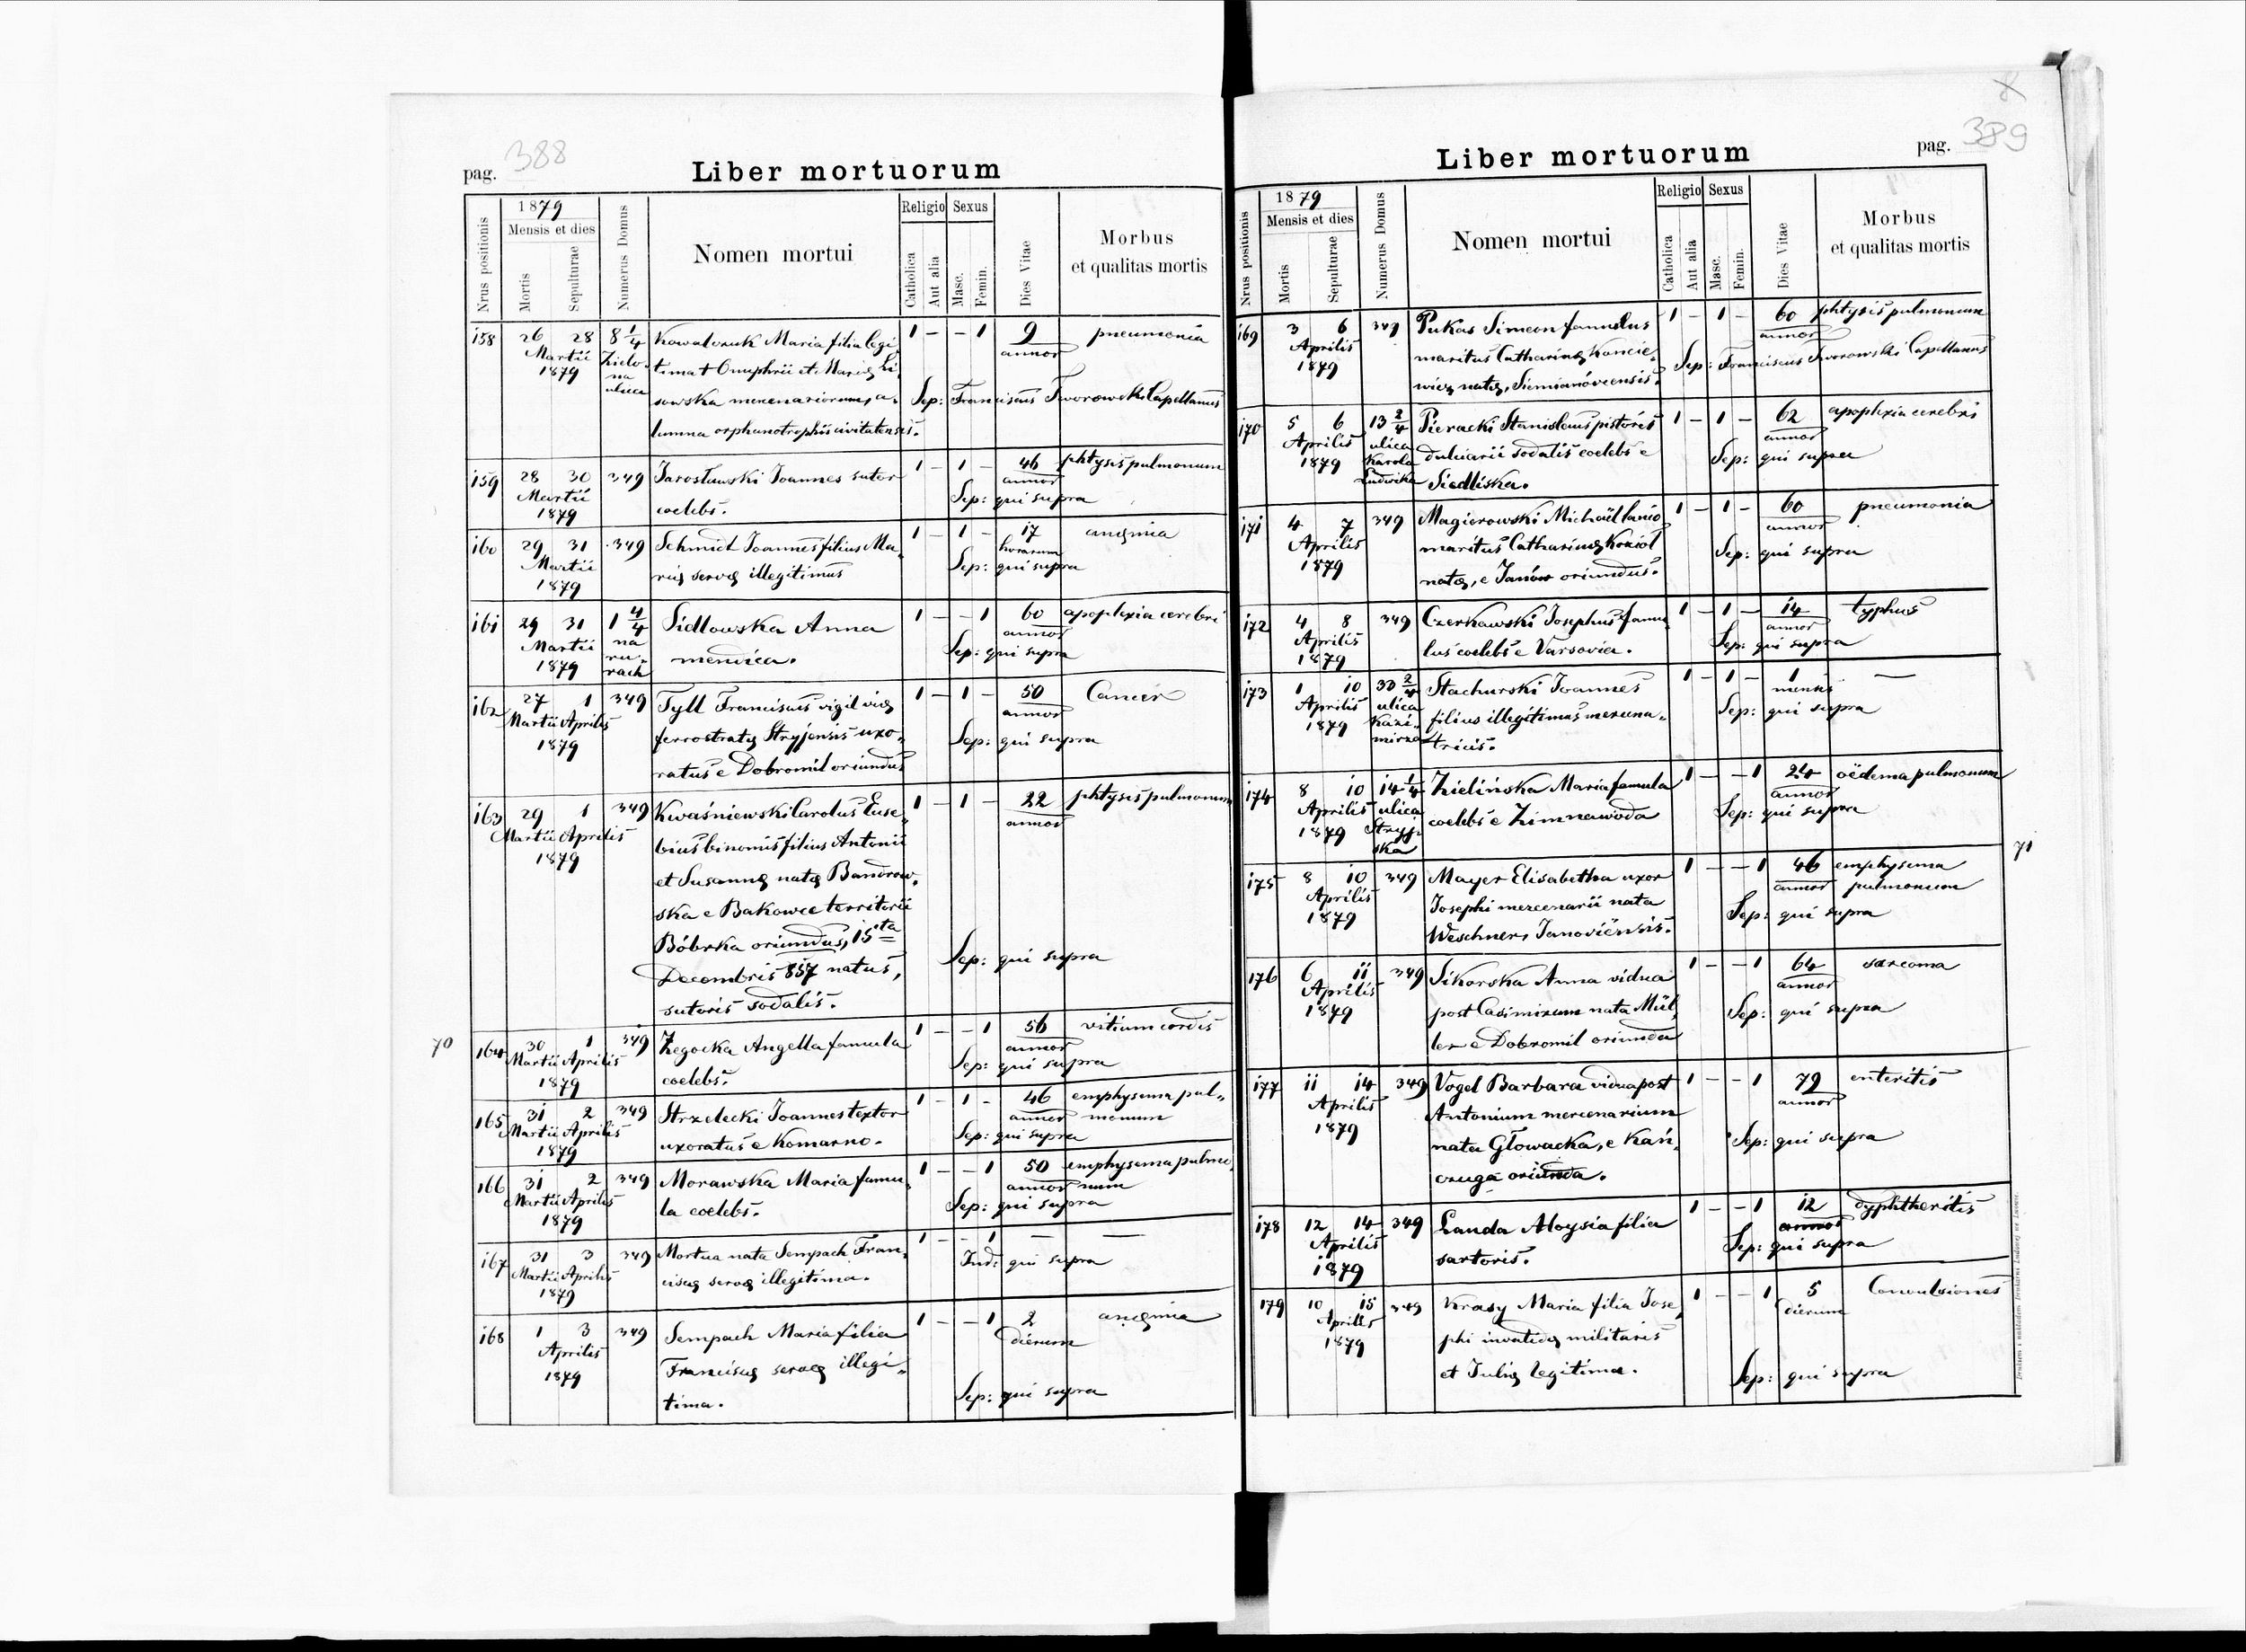 388
pag.
Liber mortuorum
Nrus positionis
1879
Mensis et dies
Mortis
Sepulturae
Numerus Domus
Nomen mortui
Religio
Catholica
Aut alia
Sexus
Masc.
Femin.
Dies Vitae
Morbus
et qualitas mortis
158 26 28 8 1/4 Kowalczuk Maria filia legi 1 - - 1 9 pneumonia
Martii Zielo- tima + Onuphrii et Mariæ Li annor
1879 na sowska mercenariorum, a- Sep: Franciscus Tworowski Capellanus
ulica lumna orphanotrophii civitatensis.
159 28 30 349 Jarosławski Joannes sutor 1 - 1 - 46 phtysis pulmonum
Martii coelebs. annor
1879 Sep: qui supra
160 29 31 349 Schmidt Joannes filius Ma- 1 - 1 - 17 angina
Martii riæ servæ illegitimus horarum
1879 Sep: qui supra
161 29 31 1 4/4 Sidlowska Anna 1 - - 1 60 apoplexia cerebri
Martii na mendica. annor
1879 ru- Sep: qui supra
rach
162 27 1 349 Tyll Franciscus vigil viæ 1 - 1 - 50 Cancer
Martii Aprilis ferrostratæ Stryjensis uxo- annor
1879 ratus e Dobromil oriundus Sep: qui supra
163 29 1 349 Kwaśniewski Carolus Euse- 1 - 1 - 22 phtysis pulmonum
Martii Aprilis bius binomis filius Antonii annor
1879 et Susannæ natæ Bandrow-
ska e Bakowce territorii
Bóbrka oriundus, 15ta
Decembris 857 natus, Sep: qui supra
sutoris sodalis.
70
164 30 1 349 Zegocka Angella famula 1 - - 1 56 vitium cordis
Martii Aprilis coelebs. annor
1879 Sep: qui supra
165 31 2 349 Strzelecki Joannes textor 1 - 1 - 46 emphysema pul-
Martii Aprilis uxoratus e Komarno. annor monum
1879 Sep: qui supra
166 31 2 349 Morawska Maria famu- 1 - - 1 50 emphysema pulmo
Martii Aprilis la coelebs. annor num
1879 Sep: qui supra
167 31 3 349 Mortua nata Sempach Fran- 1 - - 1 — —
Martii Aprilis ciscæ servæ illegitima. Ind: qui supra
1879
168 1 3 349 Sempach Maria filia 1 - - 1 2 angina
Aprilis Franciscæ servæ illegi- dierum
1879 tima. Sep: qui supra
389
pag.
Liber mortuorum
Nrus positionis
1879
Mensis et dies
Mortis
Sepulturae
Numerus Domus
Nomen mortui
Religio
Catholica
Aut alia
Sexus
Masc.
Femin.
Dies Vitae
Morbus
et qualitas mortis
169 3 6 349 Pukas Simeon famulus 1 - 1 - 60 phtysis pulmonum
Aprilis maritus Catharinæ Koncie- annor
1879 wicz natæ, Siemianóvcensis. Sep: Franciscus Tworowski Capellanus
170 5 6 13 2/4 Pieracki Stanislaus pistoris 1 - 1 - 62 apoplexia cerebri
Aprilis ulica dulciarii sodalis coelebs e annor
1879 Karola Siedliska. Sep: qui supra
Ludwika
171 4 7 349 Magierowski Michaël lanio 1 - 1 - 60 pneumonia
Aprilis maritus Catharinæ Kozioł annor
1879 natæ, e Janów oriundus. Sep: qui supra
172 4 8 349 Czerkawski Josephus famu- 1 - 1 - 14 typhus
Aprilis lus coelebs e Varsovia. annor
1879 Sep: qui supra
173 1 10 33 2/4 Stachurski Joannes 1 - 1 - 1 —
Aprilis ulica filius illegitimus mercena- mensis
1879 Kazi- tricis. Sep: qui supra
mirza
174 8 10 14 1/4 Zielińska Maria famula 1 - - 1 24 oëdema pulmonum
Aprilis ulica coelebs e Zimnawoda annor
1879 Stryj- Sep: qui supra
ska
71
175 8 10 349 Mayer Elisabetha uxor 1 - - 1 46 emphysema
Aprilis Josephi mercenarii nata annor pulmonum
1879 Weschner, Janoviensis. Sep: qui supra
176 6 11 349 Sikorska Anna vidua 1 - - 1 64 sarcoma
Aprilis post Casimirum nata Mül annor
1879 ler e Dobromil oriunda Sep: qui supra
177 11 14 349 Vogel Barbara vidua post 1 - - 1 79 enteritis
Aprilis Antonium mercenarium annor
1879 nata Głowacka, e Kań- Sep: qui supra
czuga oriunda.
178 12 14 349 Landa Aloysia filia 1 - - 1 12 dyphtheritis
Aprilis sartoris. annor
1879 Sep: qui supra
179 10 15 349 Krasy Maria filia Jose 1 - - 1 5 Convulsiones
Aprilis phi invalidæ militaris dierum
1879 et Juliæ legitima. Sep: qui supra